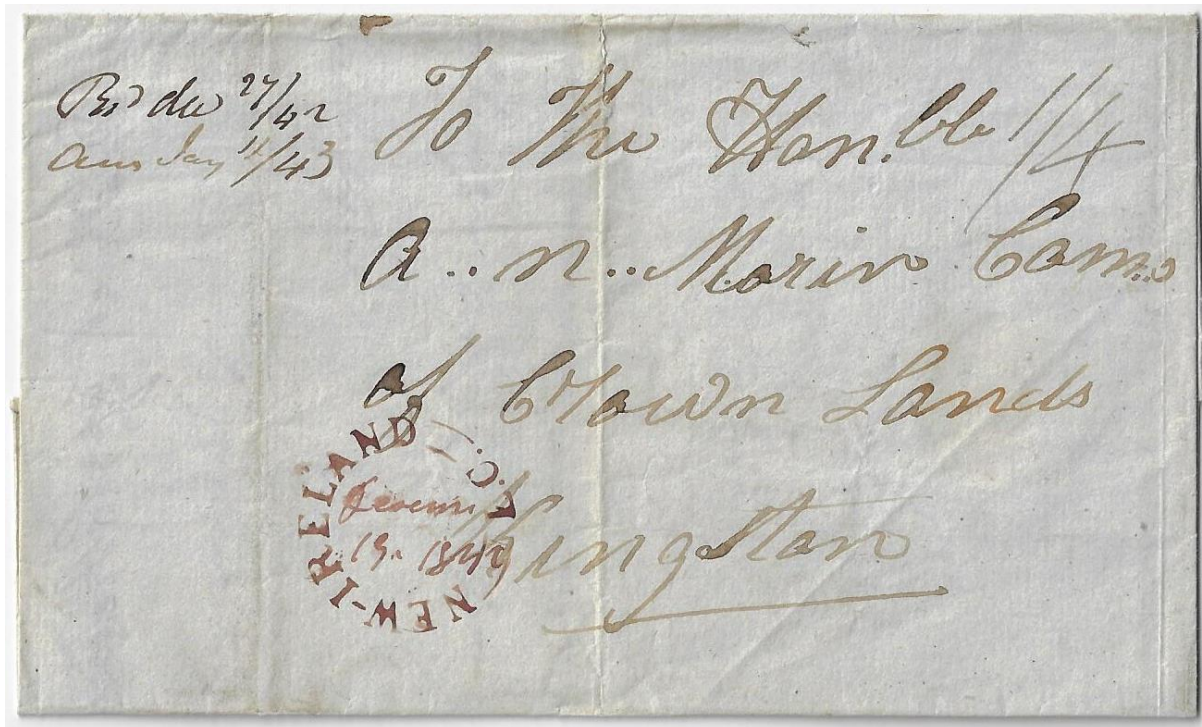 Rd dec 27/42
Ans Jany 4/43
To The Hon.ble 1/4
A.. n.. Morin Com..
of Crown Lands
Kingston
NEW-IRELAND L.C.
19. 1842